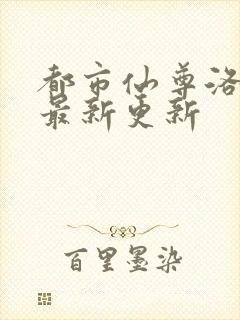 都市仙尊洛
最新更新
百里墨染